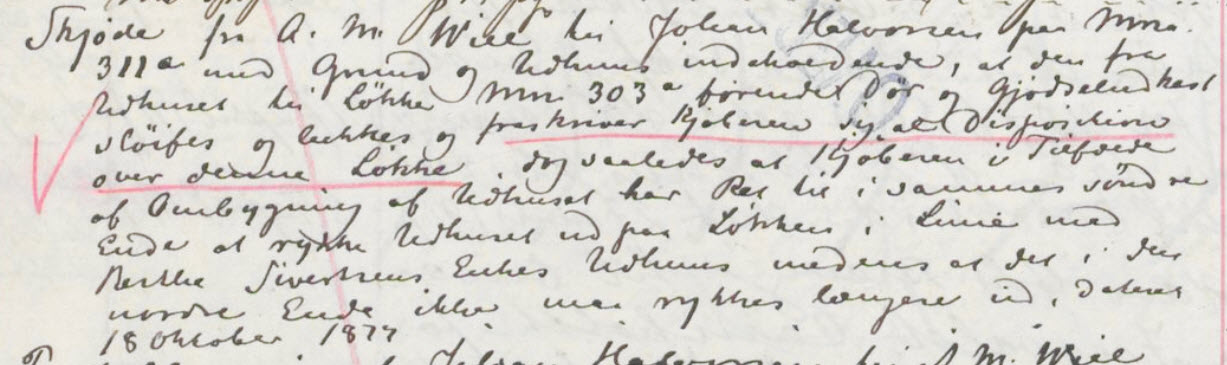 Skjøde fra A. M. Wiel til Johan Halvorsen paa Mno.
311a med Grund og Udhuus indeholdende, at den fra
Udhuset til Løkke Mno. 303a førende Dør og Gjødseludkast
sløifes og lukkes og fraskriver Kjøberen sig al Disposition
over denne Løkke, dog saaledes at Kjøberen i Tilfælde
af Ombygning af Udhuset har Ret til i sammes søndre
Ende at rykke Udhuset ud paa Løkken i Linie med
Berthe Sivertsens Enkes Udhuus medens at det i den
nordre Ende ikke maa rykkes længere ud. Dateret
18 Oktober 1877
Johan Halvorsen til A. M. Wiel